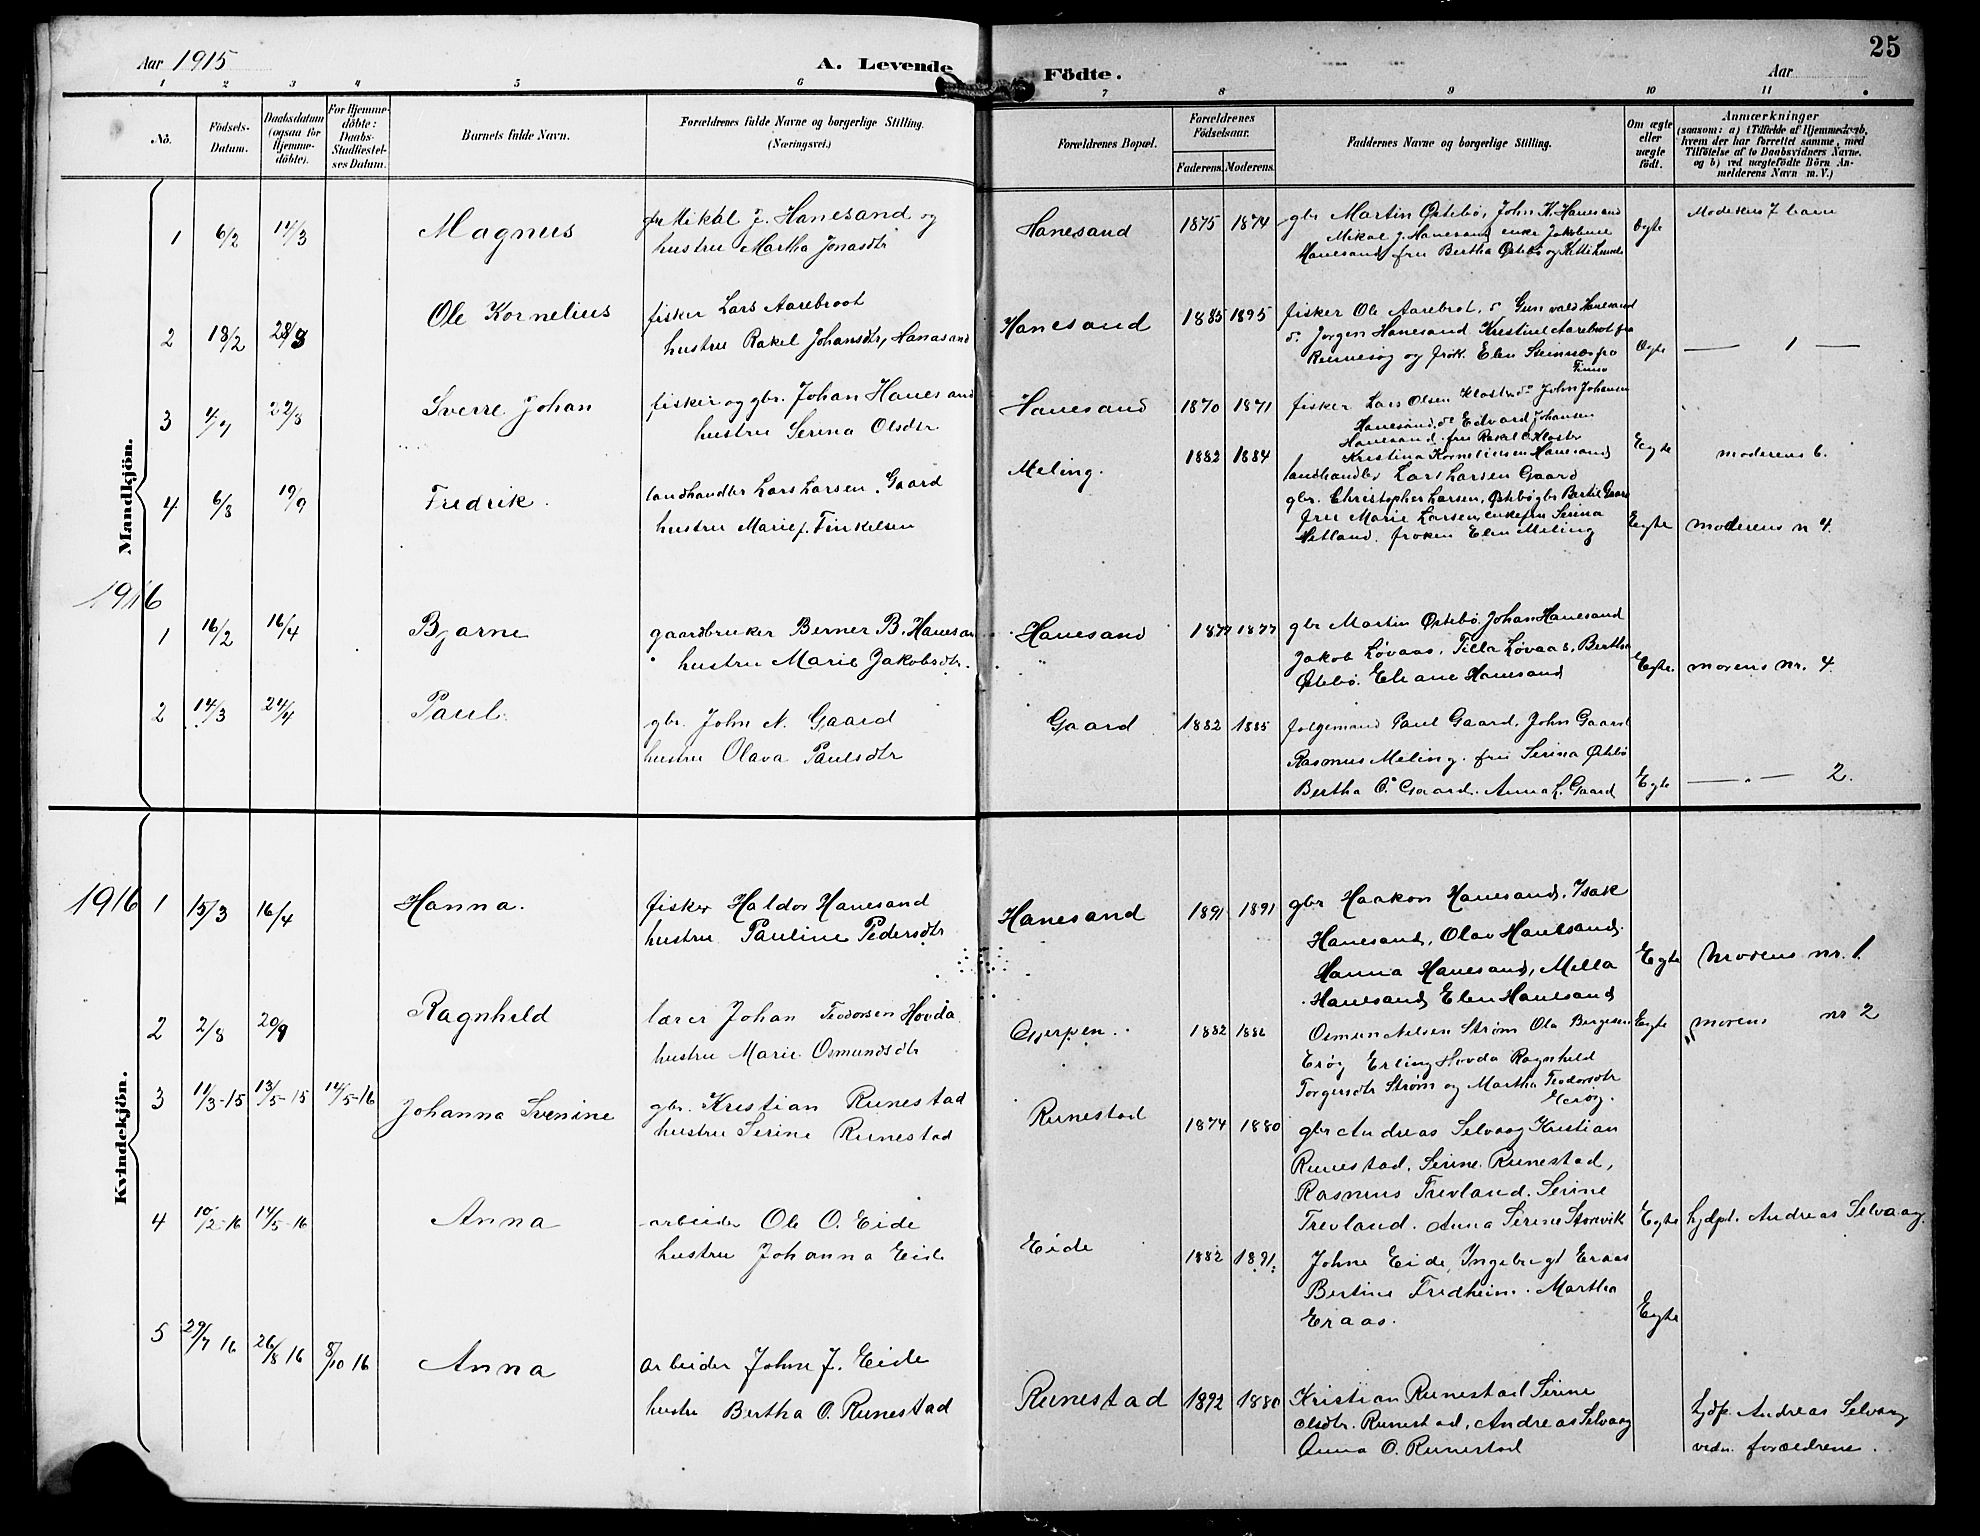 25
Aar 1915 A. Levende Födte. Aar
1 2 3 4 5 6 7 8 9 10 11
No.
Födsels-Datum.
Daabsdatum (ogsaa for Hjemmedöbte).
For Hjemmedöbte: Daabs-Stadfæstelses Datum.
Barnets fulde Navn.
Forældrenes fulde Navne og borgerlige Stilling.
(Næringsvei.)
Forældrenes Bopæl.
Forældrenes Födselsaar.
Faderens. Moderens.
Faddernes Navne og borgerlige Stilling.
Om ægte eller uægte födt.
Anmærkninger
(saasom: a) i Tilfælde af Hjemmedaab, hvem der har forrettet samme, med Tilföielse af to Daabsvidners Navne, og b) ved uægtefödte Börn Anmelderens Navn m. V.)
Mandkjön.
1 6/2 14/3 Magnus
gbr Mikal J. Hanesand og
hustru Martha Jonasdtr
Hanesand 1875 1874
gbr Martin Østebø, John K. Hanesand
Mikal J. Hanesand enke Jakobine
Hanesand fru Bertha Østebø og
Ægte
Moderens 7 barn
2 18/2 28/3 Ole Kornelius
fisker Lars Aarebroot
hustru Rakel Johansdtr, Hanasand
Hanesand 1885 1895
fisker Ole Aarebrot, do Gunvald Hanesand
do Jorgen Hanesand Kristine Aarebrot fra
Rennesøy og frøk. Elen Steinnes fra
Finnø
Ægte
— 1 —
3 22/8 Sverre Johan
fisker og gbr. Johan Hanesand
hustru Serina Olsdtr
Hanesand 1870 1871
fisker Lars Olsen Kloster do John Johansen
Hanesand, do Edvard Johansen
Hanesand. fru Rakel O. Kloster
Kristina Korneliusen Hanesand
Egte
moderens 6.
4 6/8 19/9 Fredrik.
landhandler Lars Larsen. Gaard
hustru Marie f. Finkelsen
Meling. 1882 1884
landhandler Lars Larsen Gaard
gbr. Christopher Larsen, Østebø gbr Bertil Gaard
fru Marie Larsen, enkefru Serina
Hetland. frøken Elen Meling
Egte
moderens n 4.
1916
1 16/2 16/4 Bjarne
gaardbruker Berner B. Hanesan
hustru Marie Jakobsdtr.
Hanesand 1877 1877
gbr Martin Østebø, Johan Hanesand
Jakob Løvaas, Tilla Løvaas, Bertha
Østebø. Eliane Hanesand
Egte.
morens nr. 4
2 14/3 24/4 Paul.
gbr. John N. Gaard
hustru Olava Paulsdtr
Gaard 1882 1885
folgemand Paul Gaard, John Gaard
Rasmus Meling. fru Serina Østebø
Bertha O. Gaard. Anna L. Gaard
Egte
— " — 2.
Kvindekjön.
1916
1 15/3 16/4 Hanna.
fisker Haldor Hanesand
hustru Pauline Pedersdtr
Hanesand 1891 1891
gbr Haakon Hanesand, Isak
Hanesand, Olav Hanesand.
Hanna Hanesand, Milla
Hanesand, Elen Hanesand
Egte
Morens nr. 1
2 2/8 20/9 Ragnhild
lærer Johan Teodorsen Hovda
hustru Marie Osmundsdtr
Gjerpen. 1882 1886
Osmun Nilsen Strøm Ola Bergesen
Erøy Erling Hovda Ragnhild
Torgersdtr Strøm og Martha Teodorsdtr
Erøy.
Egte
morens nr 2
3 11/3-15 13/5-15 14/5-16
Johanna Svenine
gbr. Kristian Runestad
hustru Serine Runestad
Runestad 1874 1880
gbr Andreas Selvaag Kristian
Runestad, Serine Runestad,
Rasmus Trevland. Serine
Trevland. Anna Serine Storevik
Egte
hjdpt. Andreas Selvaag.
4 10/2-16 14/5-16 Anna
arbeider Ole O. Eide
hustru Johanna Eide
Eide 1882 1891
Johne Eide, Ingebrigt Eraas
Bertine Fredheim. Martha
Eraas.
Egte
5 29/7 16 26/8 16 8/10 16
Anna
arbeider Johne J. Eide
hustr Bertha O. Runestad
Runestad 1892 1880
Kristian Runestad Serine
Olsdtr. Runestad, Andreas Selvaag
Anna O. Runestad
hjdp. Andreas Selvaag
vedn. forældrene.